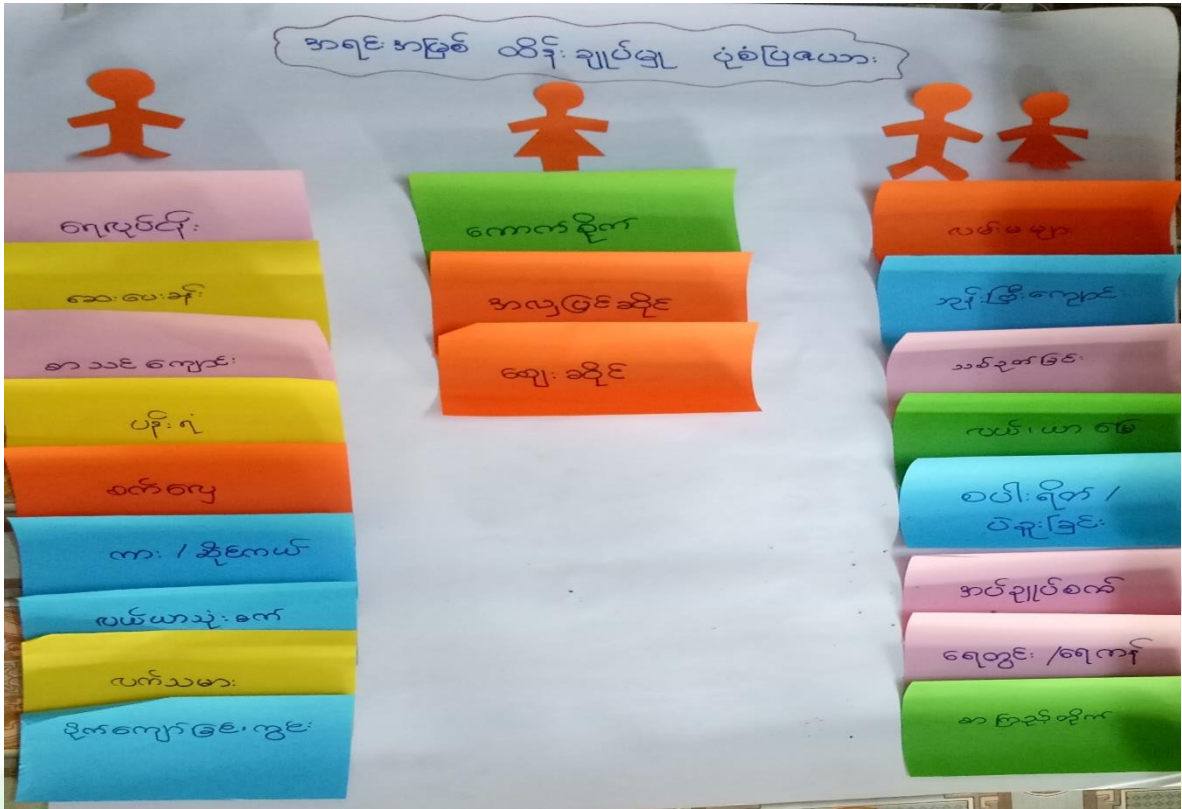 အရင်းအမြစ် ထိန်းချုပ်မှု ပုံစံပြဇယား
ရေလုပ်ငန်း
ဆေးပေးခန်း
စာသင်ကျောင်း
ပန်းရံ
စက်လှေ
ကား / ဆိုင်ကယ်
လယ်ယာသုံးစက်
လက်သမား
ပိုက်ကျော်ခြင်းကွင်း
ကောက်စိုက်
အလှပြင်ဆိုင်
ဈေးဆိုင်
လမ်းမများ
ဘုန်းကြီးကျောင်း
သစ်ခုတ်ခြင်း
လယ်၊ယာမြေ
စပါးရိတ် /
ပဲခူးခြင်း
အပ်ချုပ်စက်
ရေတွင်း /ရေကန်
စာကြည့်တိုက်